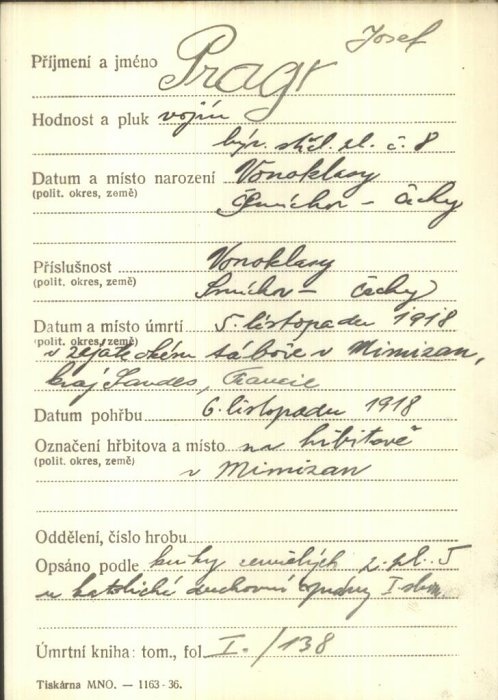 Josef
Příjmení a jméno Pragr
Hodnost a pluk vojín
býv. stříl. pl. č. 8
Datum a místo narození Vonoklasy
(polit. okres, země) Smíchov – Čechy
Příslušnost Vonoklasy
(polit. okres, země) Smíchov – Čechy
Datum a místo úmrtí 5. listopadu 1918
(polit. okres, země)
v zajateckém táboře v Mimizan,
kraj Landes, Francie
Datum pohřbu 6. listopadu 1918
Označení hřbitova a místo na hřbitově
(polit. okres, země) v Mimizan
Oddělení, číslo hrobu
Opsáno podle knihy zemřelých 2. pl.
u katolické duchovní správy I
Úmrtní kniha: tom., fol. I. / 138
Tiskárna MNO. — 1163-36.